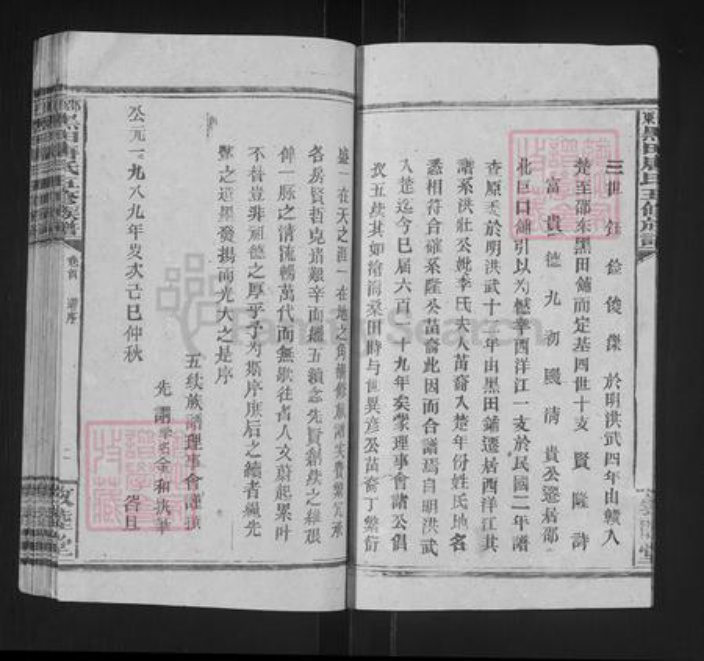 三世 於明洪武四年由贛入
楚至邵东黑田铺而定基四世十支 賢 隆 詩
富 貴 德 九 初 國 清 貴公遷居邵
北巨口铺引以为憾幸西洋江一支於民國二年譜
查原委於明洪武十年由黑田铺遷居西洋江其
譜系洪壯公妣李氏夫人苗裔入楚年份姓氏地名
悉相符合確系隆公苗裔此因而合譜焉自明洪武
入楚迄今巳届六百一十九年矣蒙理事會諸公倡
議五续其如滄海桑田時与世異彦公苗裔丁繁衍
盛一在天之涯一在地之角續修族譜实費繁冗承
各房賢哲克诸艰辛而續五續念先賢創续之維艰
伸一脉之清流暢萬代而無歇往者人文蔚起累叶
不替豈非祖德之厚乎予为斯序庶后之續者繩先
輩之遺墨發揚而光大之是序
五续族譜理事會謹識
先謂 金和
公元一九八九年岁次己巳仲秋 谷旦
黑田 氏五修族譜
卷首 譜序
FamilySearch